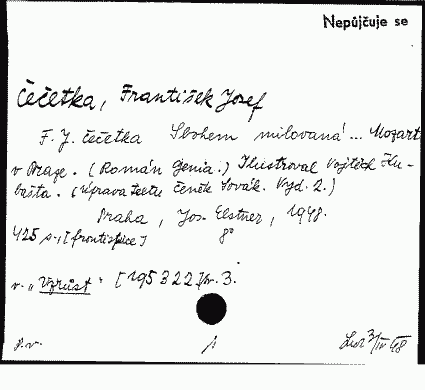 Nepůjčuje se
Čečetka, František Josef
F. J. Čečetka Sbohem milovaná!... Mozart
v Praze. (Román genia.) Ilustroval Vojtěch Hlu-
bašta. (Úprava textu Čeněk Sovák. Vyd. 2.)
Praha, Jos. Elstner, 1948.
425 s., [frontispice] 8°
v. "Vzrůst" [195322] sv. 3.
p.v. 1 3/IV 48